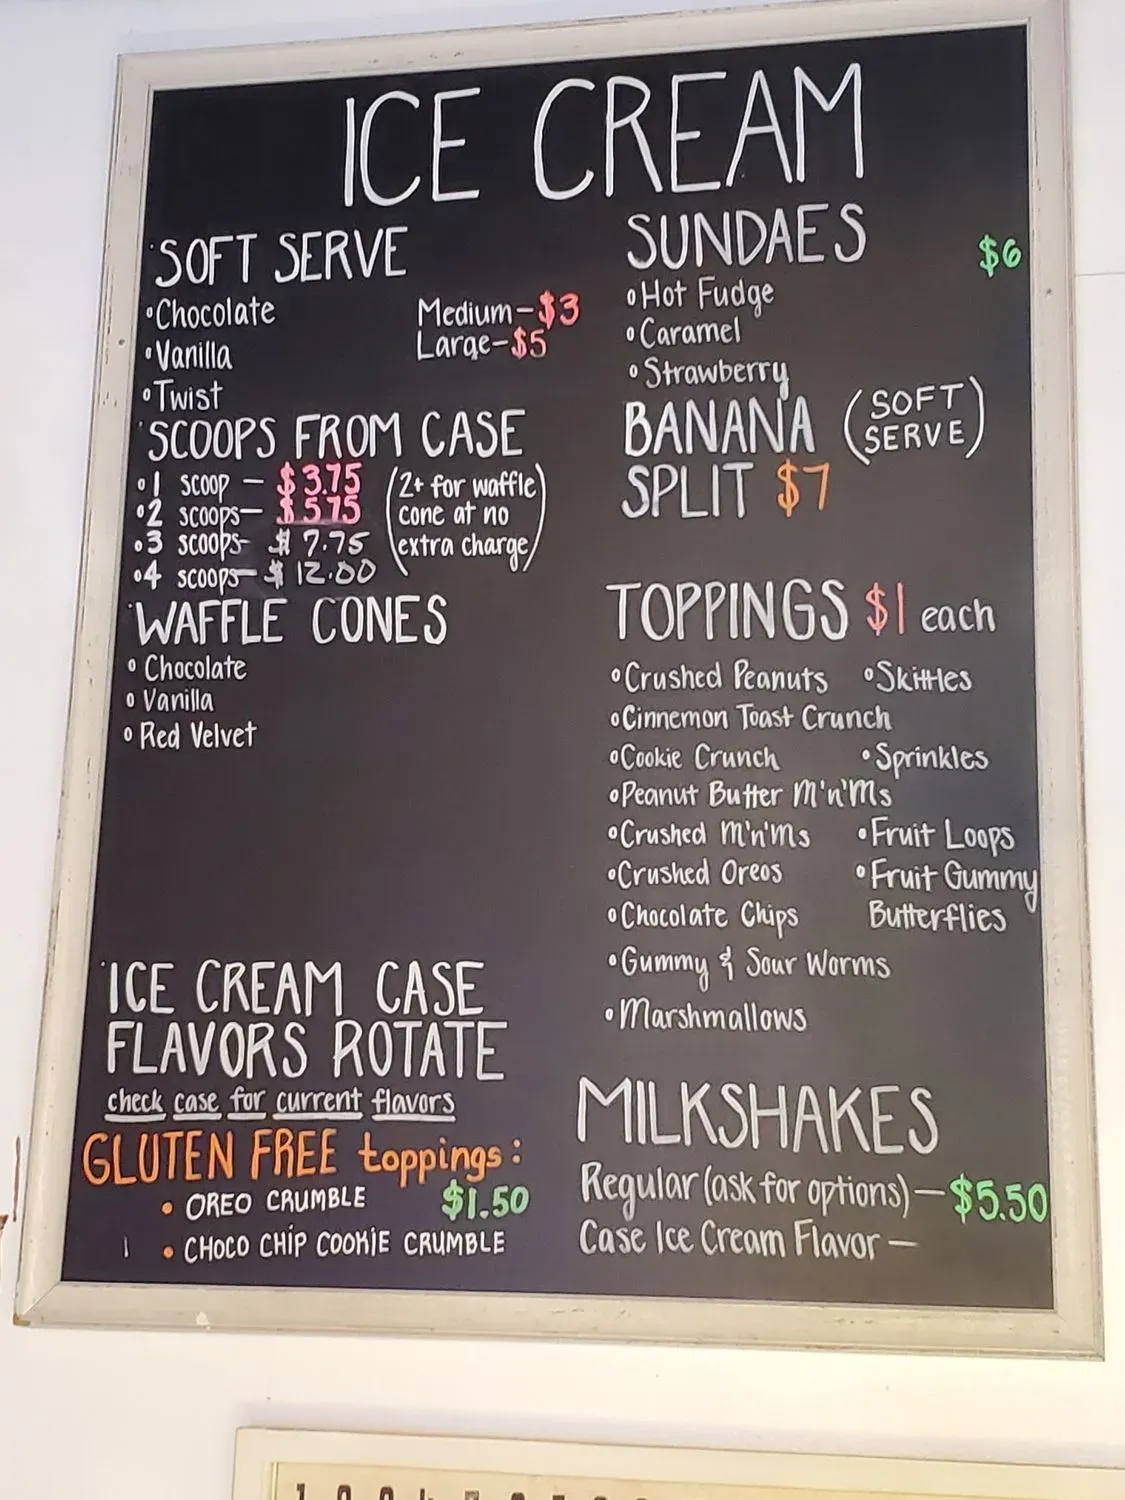 ICE CREAM
SOFT SERVE
Chocolate
Vanilla
Twist
Medium-$3
Large-$5
SCOOPS FROM CASE
1 scoop - $3.75
2 scoops- $5.75
3 scoops- $7.75
4 scoops- $12.00
(2+ for waffle
cone at no
extra charge)
WAFFLE CONES
Chocolate
Vanilla
Red Velvet
ICE CREAM CASE
FLAVORS ROTATE
check case for current flavors
GLUTEN FREE toppings:
OREO CRUMBLE $1.50
CHOCO CHIP COOKIE CRUMBLE
SUNDAES $6
Hot Fudge
Caramel
Strawberry
BANANA (SOFT
SERVE)
SPLIT $7
TOPPINGS $1 each
Crushed Peanuts
Skittles
Cinnemon Toast Crunch
Cookie Crunch
Sprinkles
Peanut Butter M'n'Ms
Crushed M'n'Ms
Fruit Loops
Crushed Oreos
Fruit Gummy
Butterflies
Chocolate Chips
Gummy & Sour Worms
Marshmallows
MILKSHAKES
Regular (ask for options) - $5.50
Case Ice Cream Flavor -